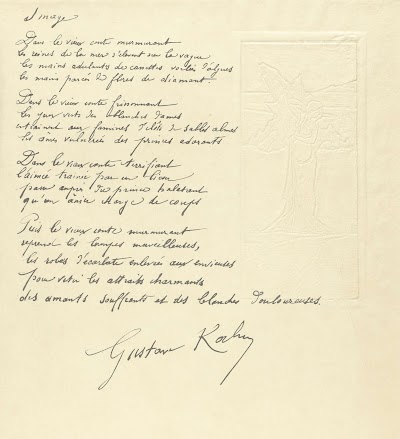 Image
Dans le vieux conte murmurant
les reines de la mer s'élèvent sur la vague
les mains adulants de voilées d'algues
les mains parées de flores de diamant
Dans le vieux conte frissonnant
les yeux verts des blanches dames
aux famines d'étés de sables
les âmes vulnérées des princes adorants
Dans le vieux conte terrifiant
l'aimée traînée par un lien
passe auprès du prince haletant
qu'un ânier de coups
Puis le vieux conte murmurant
reprend les lampes merveilleuses,
les robes d'écarlate enlevées aux envieuses
pour vêtir les attraits charmants
des amants souffrants et des blondes douloureuses.
Gustave Kahn